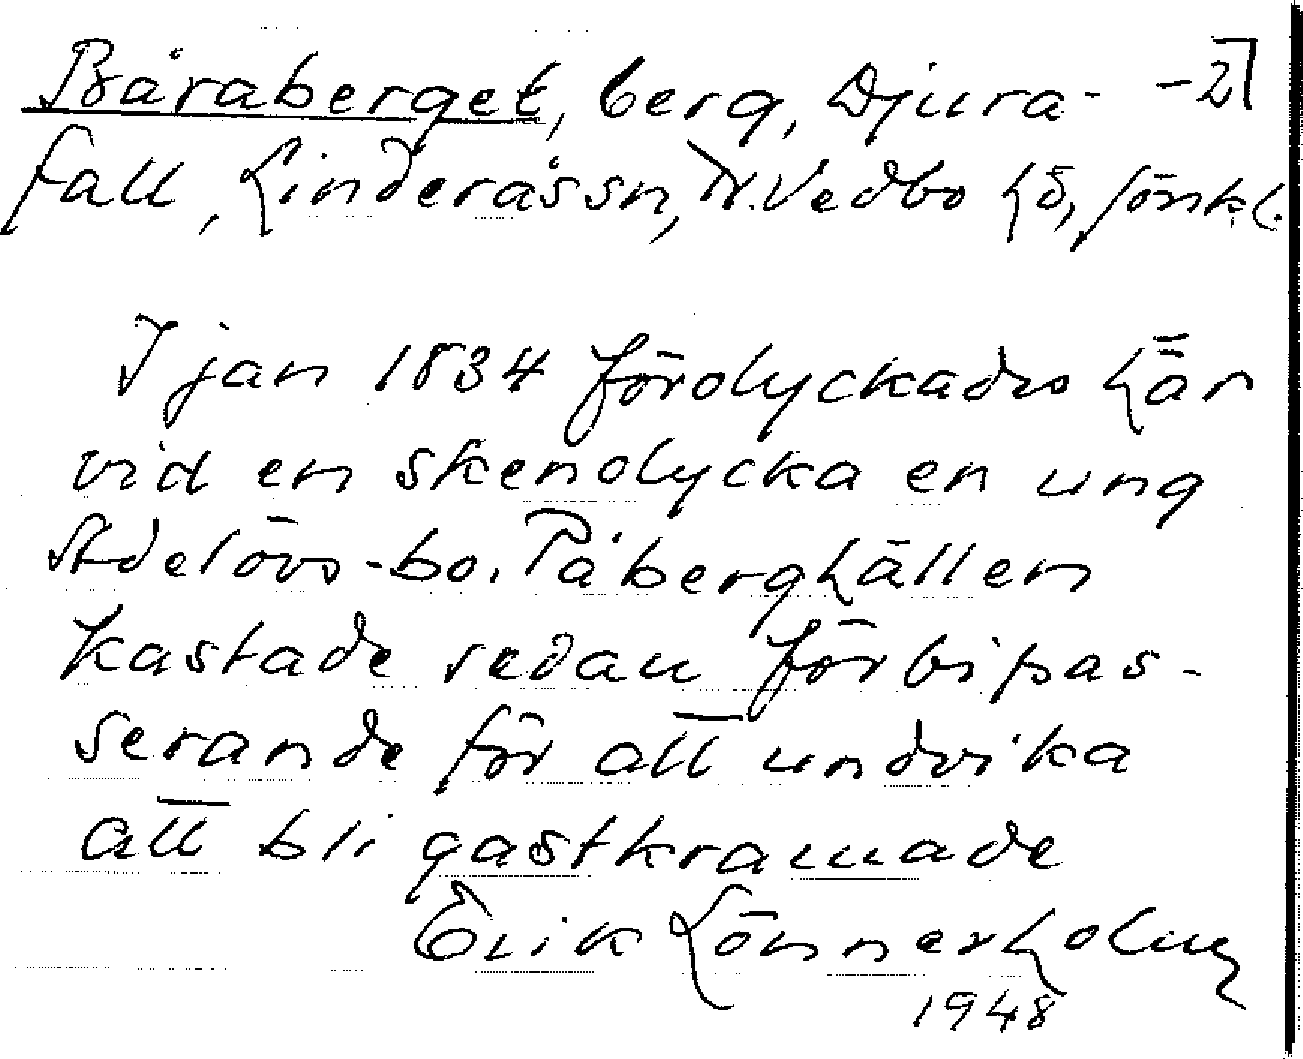 Båraberget, berg, Djura- -2]
fall, Linderås sn, N. Vedbo hd, Jönk. l.
I jan 1834 förolyckades här
vid en skenolycka en ung
Adelövs-bo. På berghällen
kastade sedan förbipas-
serande för att undvika
att bli gastkramade
Erik Lönnerholm
1948